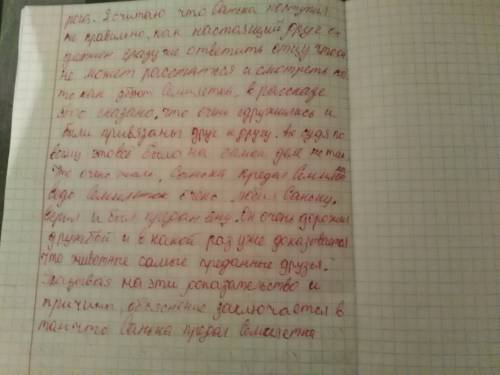 рога. Я считаю что Санька поступил
не правильно, как настоящий друг он
должен сразу же ответить отцу что он
не может расстаться и смотреть на
то как убют Семилетка, в рассказе
это сказано, что очень сдружились и
были привязаны друг к другу. Но судя по
всему это всё было на самом деле не так
Это очень жаль, Санька предал Семилетка
ведь Семилеток очень любил Саньку.
верил и был предан ему. Он очень дорожил
дружбой и в какой раз уже доказывается
что животные самые преданные друзья.
Указывая на эти доказательство и
причины, объяснение заключается в
том что Санька предал Семилетка